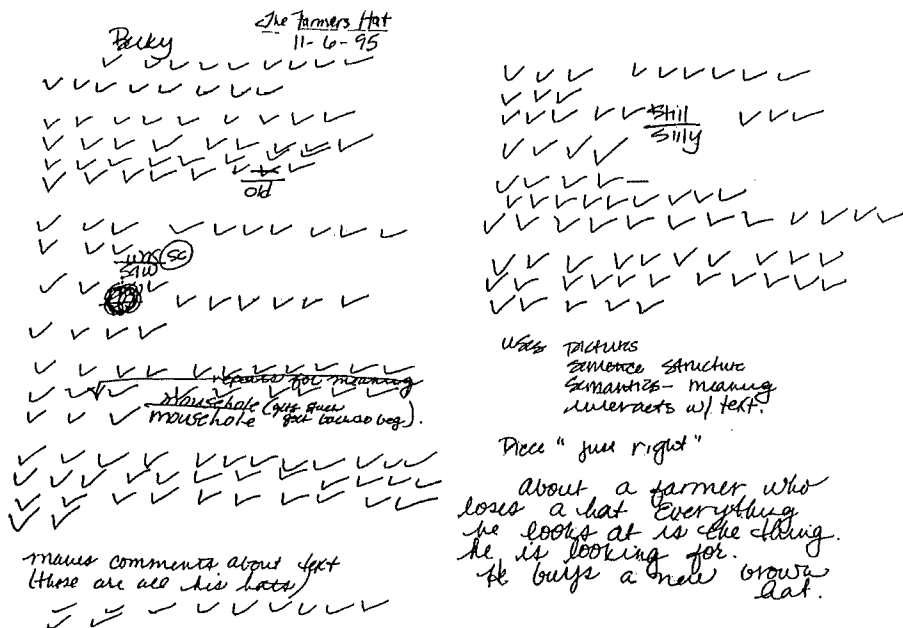 Becky
The Farmers Hat
11-6-95
old
was sc
saw
repeats for meaning
mousehole
mousehole
makes comments about text
(these are all his hats)
Still
Silly
uses pictures
sentence structure
semantics - meaning
interacts w/ text.
"just right"
About a farmer who
loses a hat Everything
he looks at is the thing.
he is looking for.
He buys a new brown
hat.